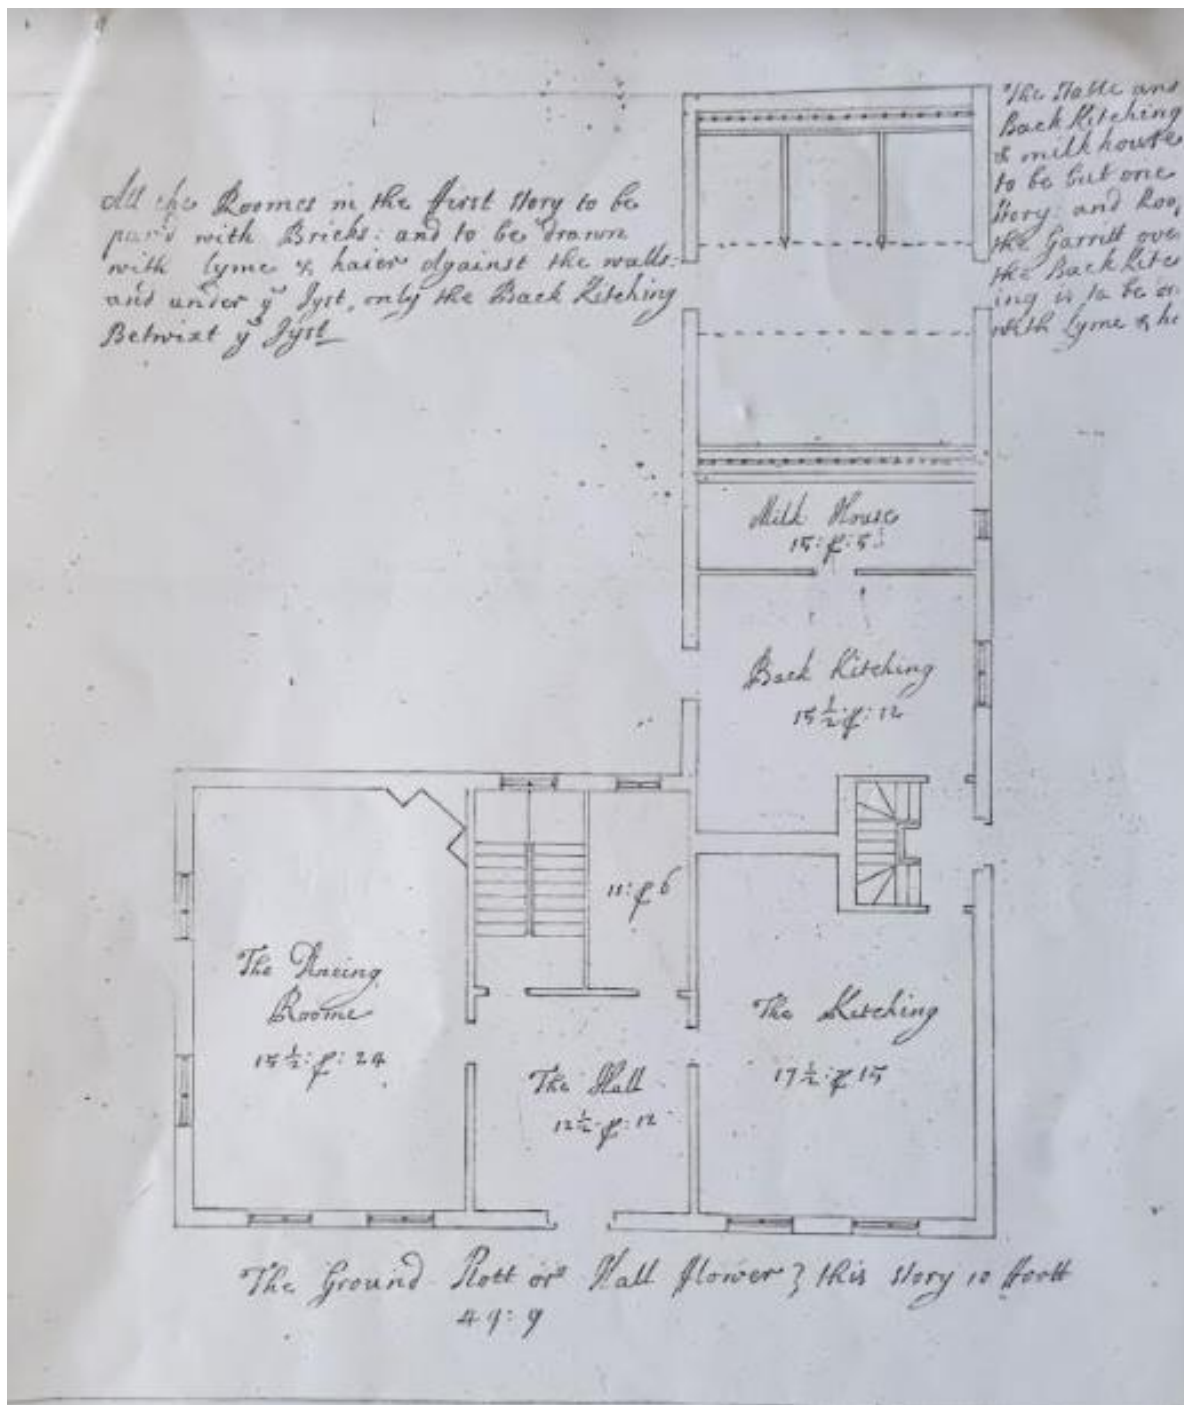 All the Roomes in the first story to be
pav'd with Bricks: and to be drawn
with lyme & haier against the walls:
and under ye Jyst, only the Back Kitching
Betwixt ye Jyst
The Stable and
Back Kitching
& milkhouse
to be but one
Story: and
the Garritt ove
the Back Kitc
ing is to be
with Lyme & h
Milk House
15: f: 5
Back Kitching
15 1/2: f: 12
11: f 6
The
Roome
15 1/2: f: 24
The Kitching
17 1/2: f 15
The Hall
12 1/2: f: 12
The Ground Plott or Hall flower } this story 10 foott
49: 9